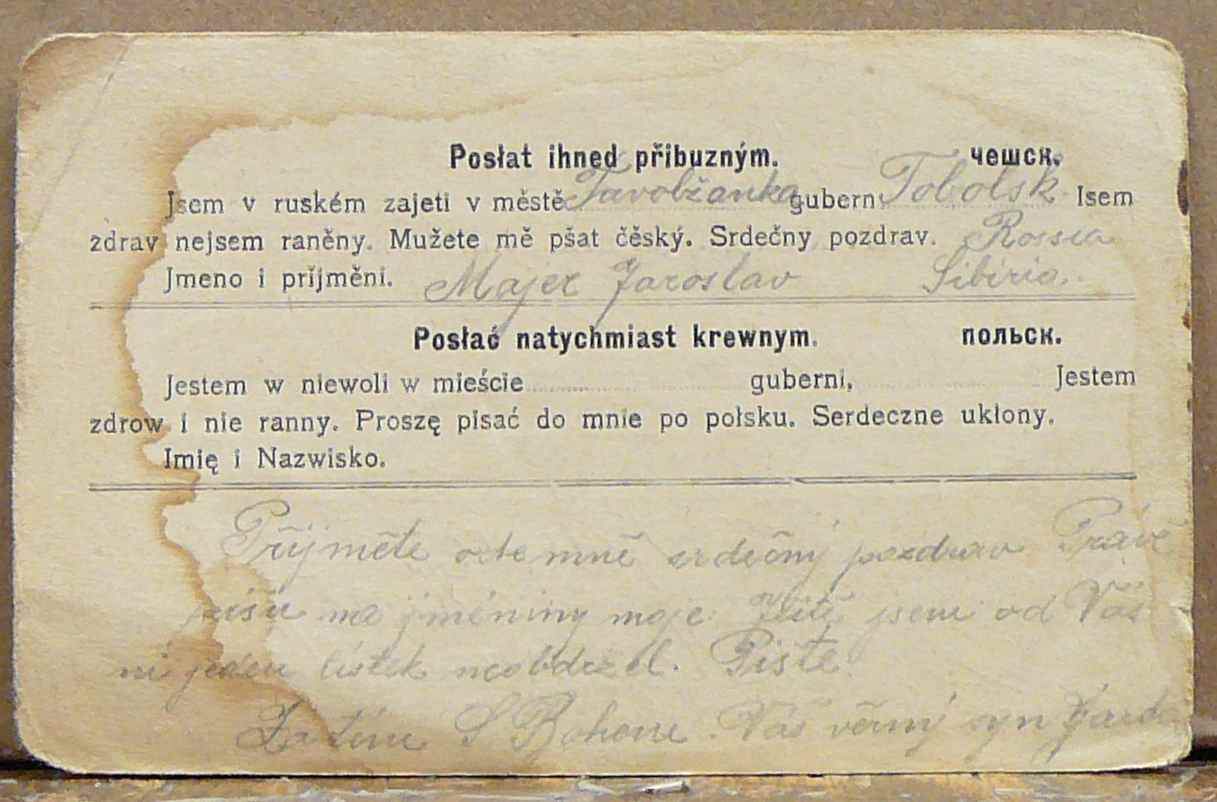 Posłat ihned přibuzným. чешск.
Jsem v ruském zajeti v městě Tavolžanka gubern. Tobolsk Isem
zdrav nejsem raněny. Mužete mě pšat čěský. Srdečny pozdrav. Rossia
Jmeno i prijměni. Majer Jaroslav Sibiria.
Posłać natychmiast krewnym. польск.
Jestem w niewoli w mieście guberni, Jestem
zdrow i nie ranny. Proszę pisać do mnie po połsku. Serdeczne ukłony.
Imię i Nazwisko.
Přijměte ode mně srdečný pozdrav Právě
píšu na jméniny moje. jsem od Vás
ni jeden lístek neobdržel. Pište.
Zatím S Bohem. Váš věrný syn Jarda